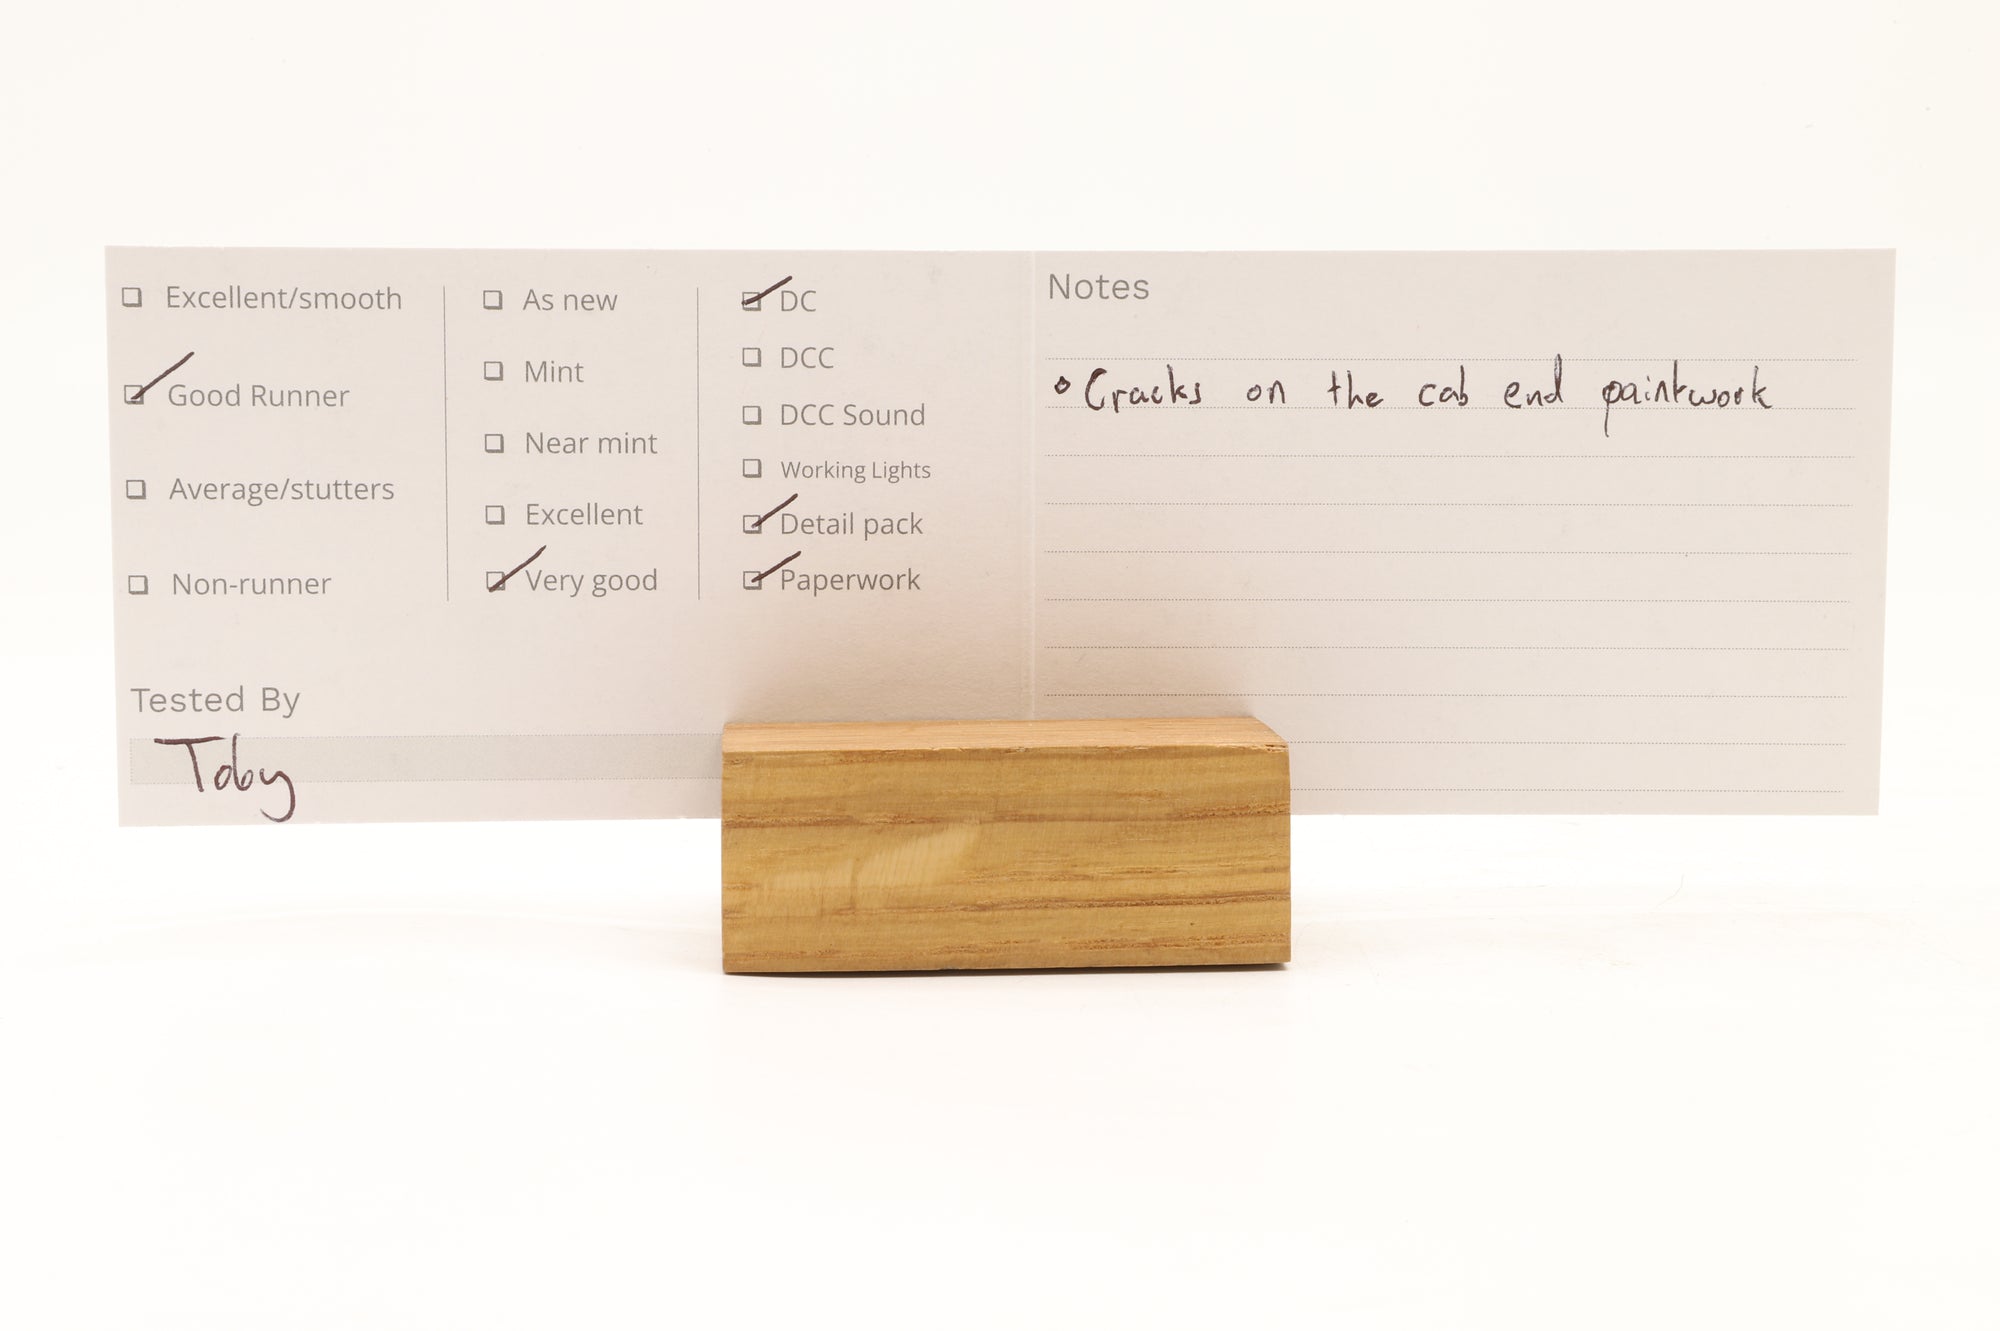 Excellent/smooth
Good Runner
Average/stutters
Non-runner
As new
Mint
Near mint
Excellent
Very good
DC
DCC
DCC Sound
Working Lights
Detail pack
Paperwork
Tested By
Toby
Notes
Cracks on the cab end paintwork